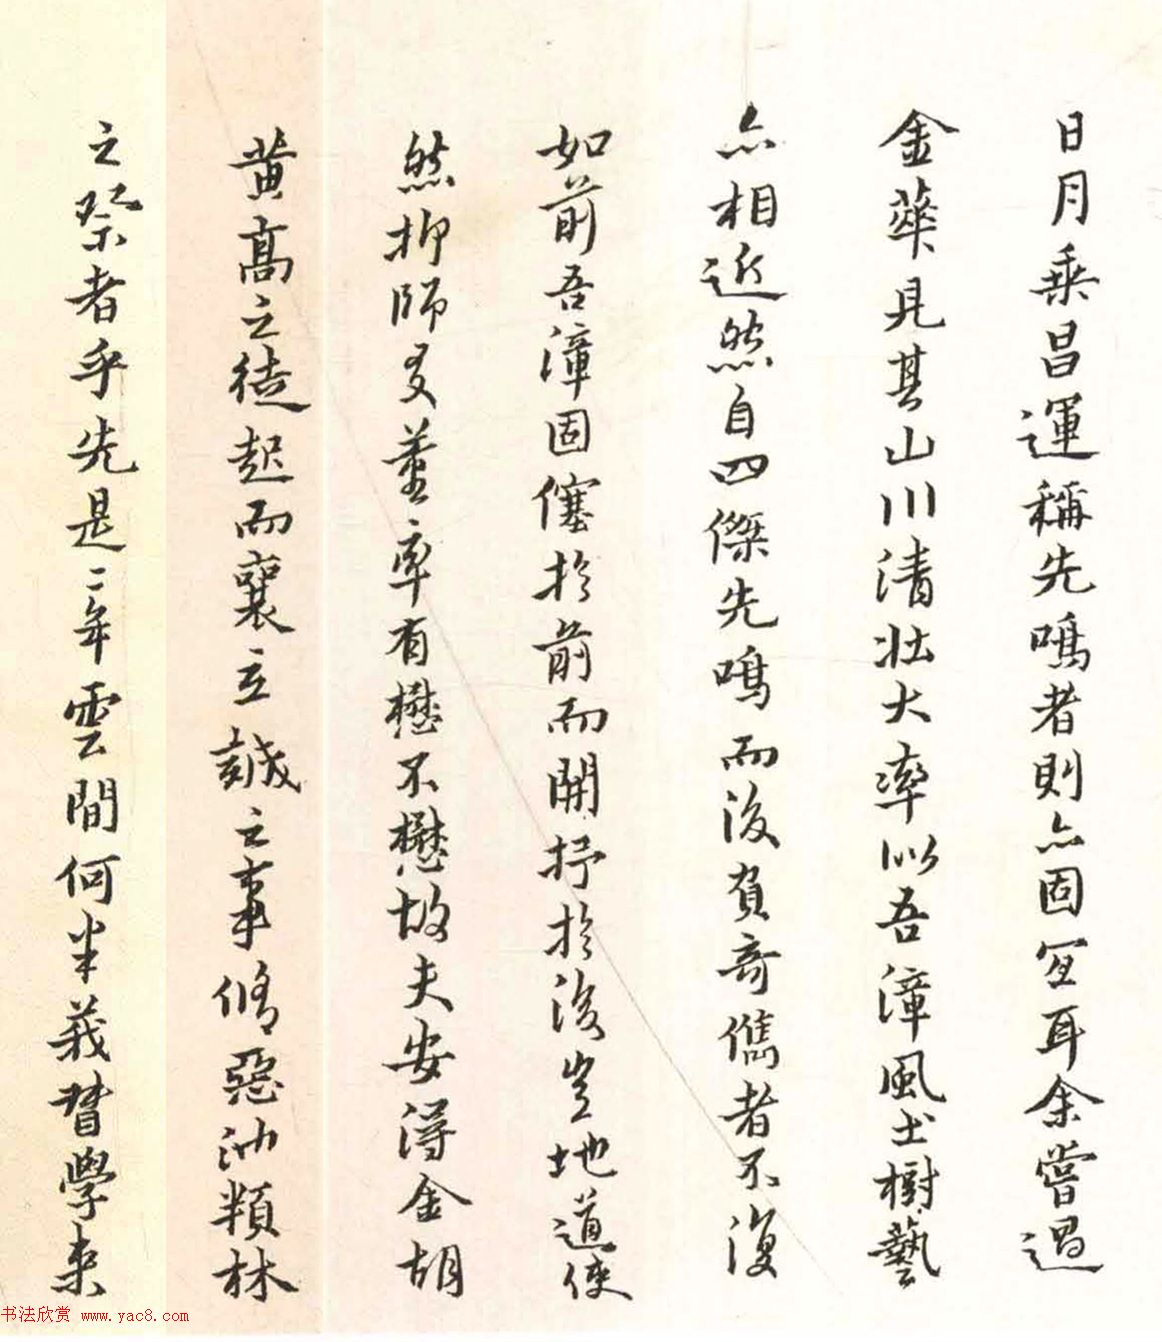 日月乗昌運稱先鳴者則亦固宜耳余嘗過
金華見其山川清壯大率似吾漳風土樹藝
亦相近然自四傑先鳴而後負奇儁者不復
如前吾漳固僿於前而開抒於後豈地道使
然抑師友董率有懋不懋故夫安得金胡
黄髙之徒起而襄立誠之事脩惡沕類林
之祭者乎先是二年雲間何半莪督學来
书法欣赏 www.yac8.com